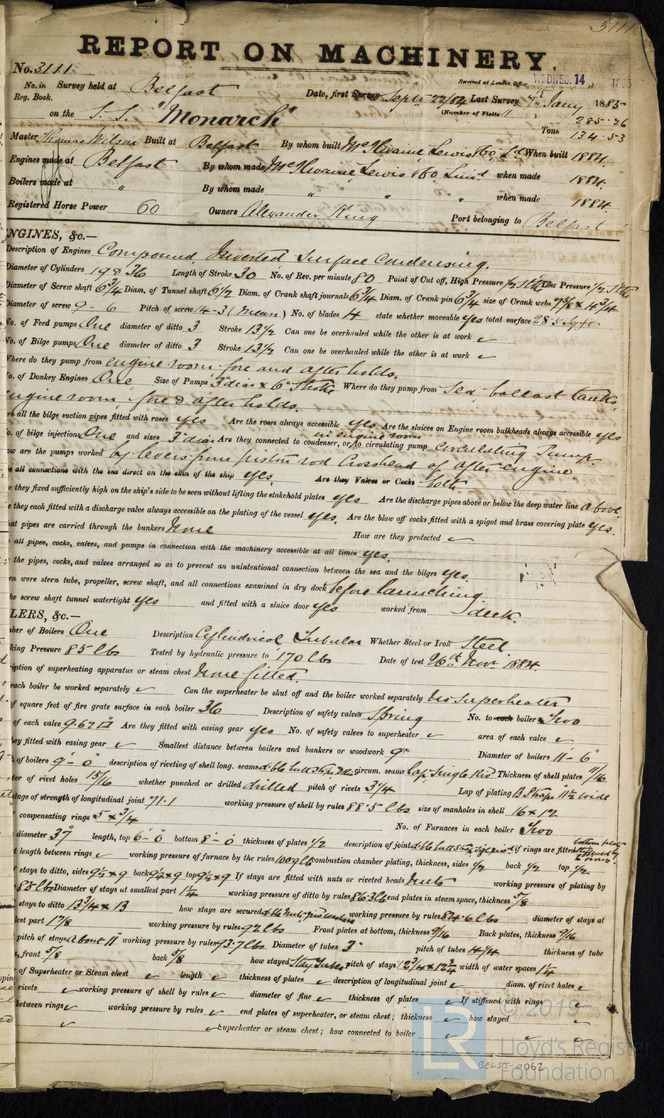 3111
REPORT ON MACHINERY.
No. 3111
Received at London Office, WEDNES. 14
No. in Survey held at Belfast Date, first Survey Septr 22/84 Last Survey Jany 1885
Reg. Book. (Number of Visits 285.26
on the S.S. "Monarch" Tons 134.53
Master Thomas Wilson Built at Belfast By whom built McIlwaine Lewis & Co Ld When built 1884
Engines made at Belfast By whom made McIlwaine Lewis & Co Limd when made 1884.
Boilers made at " By whom made " " when made 1884.
Registered Horse Power 60 Owners Alexander King Port belonging to Belfast
NGINES, &c.—
Description of Engines Compound Inverted Surface Condensing.
Diameter of Cylinders 19 & 36 Length of Stroke 30 No. of Rev. per minute 80 Point of Cut off, High Pressure 1/2 Stroke Low Pressure 1/2 Stroke
Diameter of Screw shaft 6 3/4 Diam. of Tunnel shaft 6 1/2 Diam. of Crank shaft journals 6 3/4 Diam. of Crank pin 6 3/4 size of Crank webs
Diameter of screw 9-6 Pitch of screw 14-3 (mean) No. of blades 4 state whether moveable yes total surface 28.5 sq ft
No. of Feed pumps One diameter of ditto 3 Stroke 13 1/2 Can one be overhauled while the other is at work ✓
No. of Bilge pumps One diameter of ditto 3 Stroke 13 1/2 Can one be overhauled while the other is at work ✓
Where do they pump from engine room fore and after holds.
No. of Donkey Engines One Size of Pumps 3" dia x 6" Stroke Where do they pump from Sea, ballast tanks,
engine room fore & after holds.
re all the bilge suction pipes fitted with roses yes Are the roses always accessible yes Are the sluices on Engine room bulkheads always accessible yes
in engine room
o. of bilge injections One and sizes 3" dia Are they connected to condenser, or to circulating pump circulating pump.
ow are the pumps worked by levers from piston rod Crosshead of after engine
re all connections with the sea direct on the skin of the ship yes. Are they Valves or Cocks both.
e they fixed sufficiently high on the ship's side to be seen without lifting the stokehold plates yes Are the discharge pipes above or below the deep water line above.
e they each fitted with a discharge valve always accessible on the plating of the vessel yes. Are the blow off cocks fitted with a spigot and brass covering plate yes.
at pipes are carried through the bunkers None How are they protected ✓
all pipes, cocks, valves, and pumps in connection with the machinery accessible at all times yes.
the pipes, cocks, and valves arranged so as to prevent an unintentional connection between the sea and the bilges yes.
en were stern tube, propeller, screw shaft, and all connections examined in dry dock before launching.
e screw shaft tunnel watertight yes and fitted with a sluice door yes worked from deck.
LERS, &c.—
ber of Boilers One Description Cylindrical Tubular Whether Steel or Iron Steel
king Pressure 85 lbs Tested by hydraulic pressure to 170 lbs Date of test 26th Novr 1884.
iption of superheating apparatus or steam chest None fitted.
each boiler be worked separately ✓ Can the superheater be shut off and the boiler worked separately no superheater
of square feet of fire grate surface in each boiler 36 Description of safety valves Spring No. to each boiler Two
of each valve 9.62 Are they fitted with easing gear yes No. of safety valves to superheater ✓ area of each valve ✓
ey fitted with easing gear ✓ Smallest distance between boilers and bunkers or woodwork 9" Diameter of boilers 11-6"
of boilers 9-0" description of riveting of shell long. seams circum. seams Lap, Single Riv. Thickness of shell plates 11/16
ter of rivet holes 15/16 whether punched or drilled drilled pitch of rivets 3 1/4 Lap of plating B Straps 11 1/2 wide
tage of strength of longitudinal joint 71.1 working pressure of shell by rules 88.5 lbs size of manholes in shell 16 x 12
compensating rings 5 x 3/4 No. of Furnaces in each boiler Two
diameter 37" length, top 6-0 bottom 8-0 thickness of plates 1/2 description of joint if rings are fitted
t length between rings ✓ working pressure of furnace by the rules 100 lbs combustion chamber plating, thickness, sides 1/2 back 1/2 top 1/2
stays to ditto, sides 9 1/2 x 9 back 9 1/2 x 9 top 9 1/2 x 9 If stays are fitted with nuts or riveted heads nuts working pressure of plating by
88 lbs Diameter of stays at smallest part 1 1/4 working pressure of ditto by rules 86.3 lbs end plates in steam space, thickness 5/8
stays to ditto 13 3/4 x 13 how stays are secured working pressure by rules 84.6 lbs diameter of stays at
lest part 1 7/8 working pressure by rules 92 lbs Front plates at bottom, thickness 9/16 Back plates, thickness 9/16
pitch of stays about 11 working pressure by rules 93.7 lbs Diameter of tubes 3" pitch of tubes thickness of tube
s, front 5/8 back 5/8 how stayed Stay Tubes pitch of stays width of water spaces 1 1/4
of Superheater or Steam chest ✓ length ✓ thickness of plates ✓ description of longitudinal joint ✓ diam. of rivet holes ✓
rivets ✓ working pressure of shell by rules ✓ diameter of flue ✓ thickness of plates ✓ If stiffened with rings ✓
between rings ✓ working pressure by rules ✓ end plates of superheater, or steam chest; thickness ✓ how stayed ✓
✓ Superheater or steam chest; how connected to boiler ✓
LR
© 2019
Lloyd's Register
Foundation